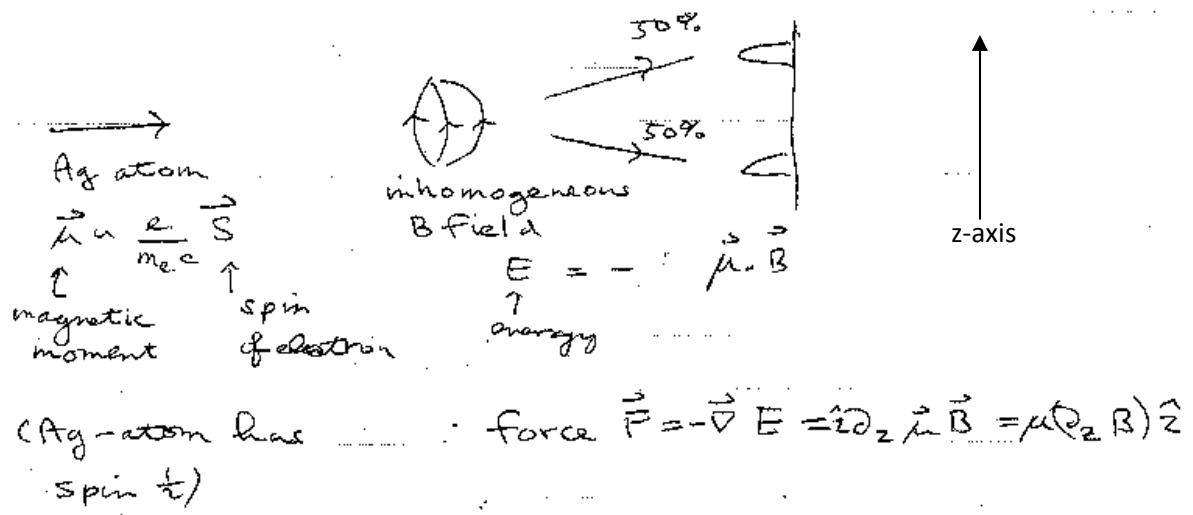 50%
50%
z-axis
Ag atom
inhomogeneous
B field
μ⃗ ~ e/(mₑc) S⃗
E = - μ⃗ · B⃗
↑ magnetic moment
↑ spin of electron
↑ energy
(Ag-atom has
spin ½)
∴ force F⃗ = -∇⃗ E = ẑ∂z μ⃗ B⃗ = μ(∂z B) ẑ